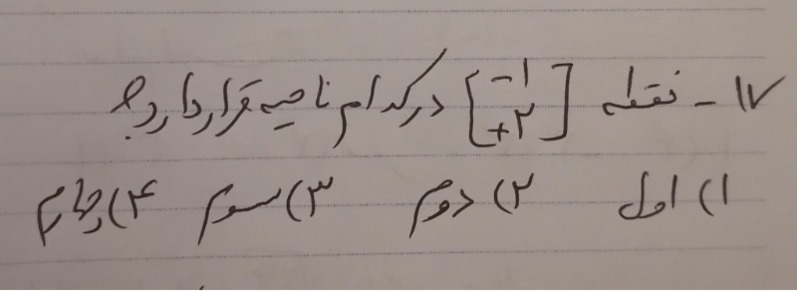 ۱۷ - نقطه [−۱ +۲] در کدام ناحیه قرار دارد؟
۱) اول ۲) دوم ۳) سوم ۴) چهارم